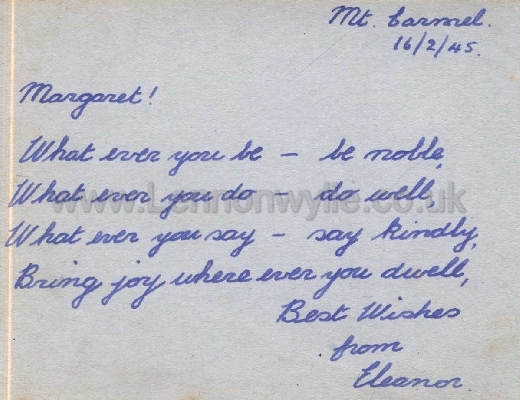 Mt. Carmel.
16/2/45.
Margaret!
What ever you be – be noble,
What ever you do – do well,
www.Lennonwylie.co.uk
What ever you say – say kindly,
Bring joy where ever you dwell,
Best Wishes
from
Eleanor.